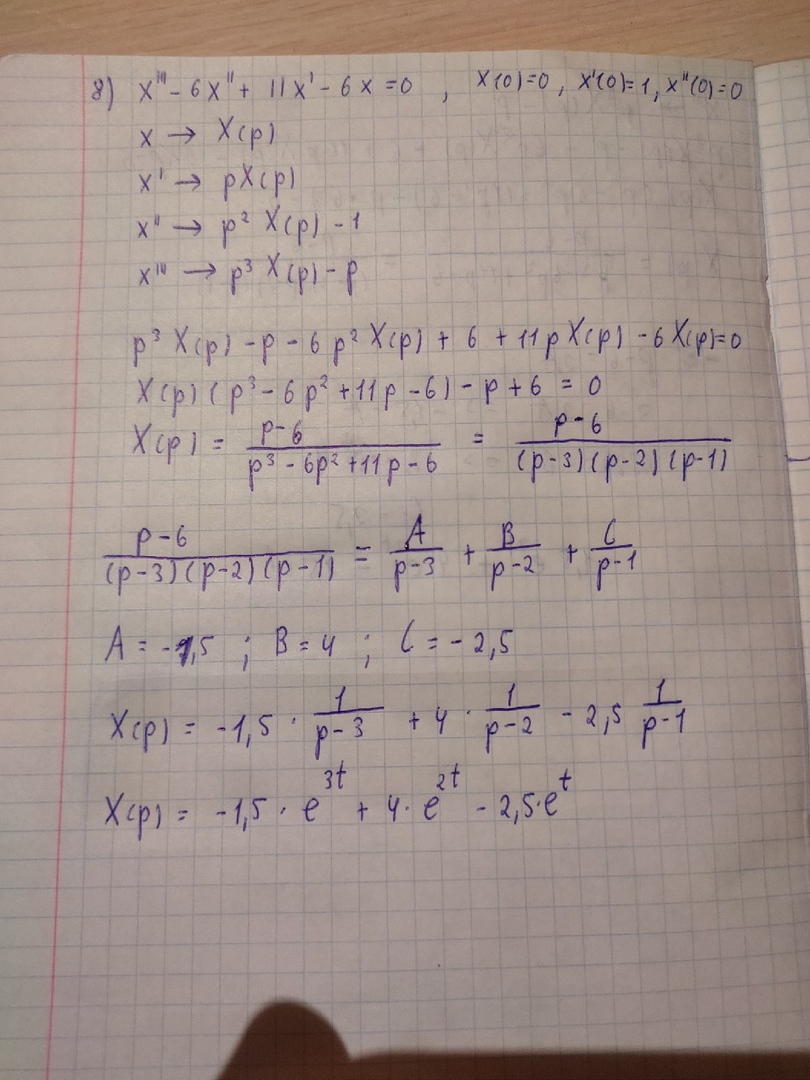 8) x''' - 6x'' + 11x' - 6x = 0 , x(0)=0, x'(0)=1, x''(0)=0
x → X(p)
x' → pX(p)
x'' → p² X(p) - 1
x''' → p³ X(p) - p
p³ X(p) - p - 6p² X(p) + 6 + 11p X(p) - 6X(p)=0
X(p) (p³ - 6p² + 11p - 6) - p + 6 = 0
X(p) = (p-6)/(p³ - 6p² + 11p - 6) = (p-6)/((p-3)(p-2)(p-1))
(p-6)/((p-3)(p-2)(p-1)) = A/(p-3) + B/(p-2) + C/(p-1)
A = -1,5 ; B = 4 ; C = -2,5
X(p) = -1,5 · 1/(p-3) + 4 · 1/(p-2) - 2,5 1/(p-1)
X(p) = -1,5 · e^3t + 4 · e^2t - 2,5·e^t